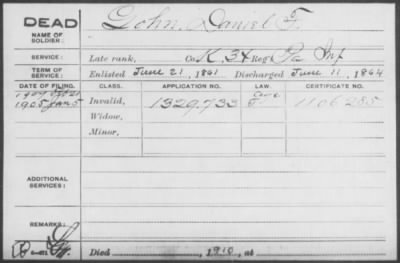 DEAD
Gohn, Daniel F.
NAME OF SOLDIER:
SERVICE: Late rank, Co. K, 34 Reg't Pa Inf
TERM OF SERVICE: Enlisted June 21, 1861 Discharged June 11, 1864
DATE OF FILING. CLASS. APPLICATION NO. LAW. CERTIFICATE NO.
1905 Jan 5 Invalid, 1329.733 1106285
Widow,
Minor,
ADDITIONAL SERVICES:
REMARKS:
Died , 1910, at